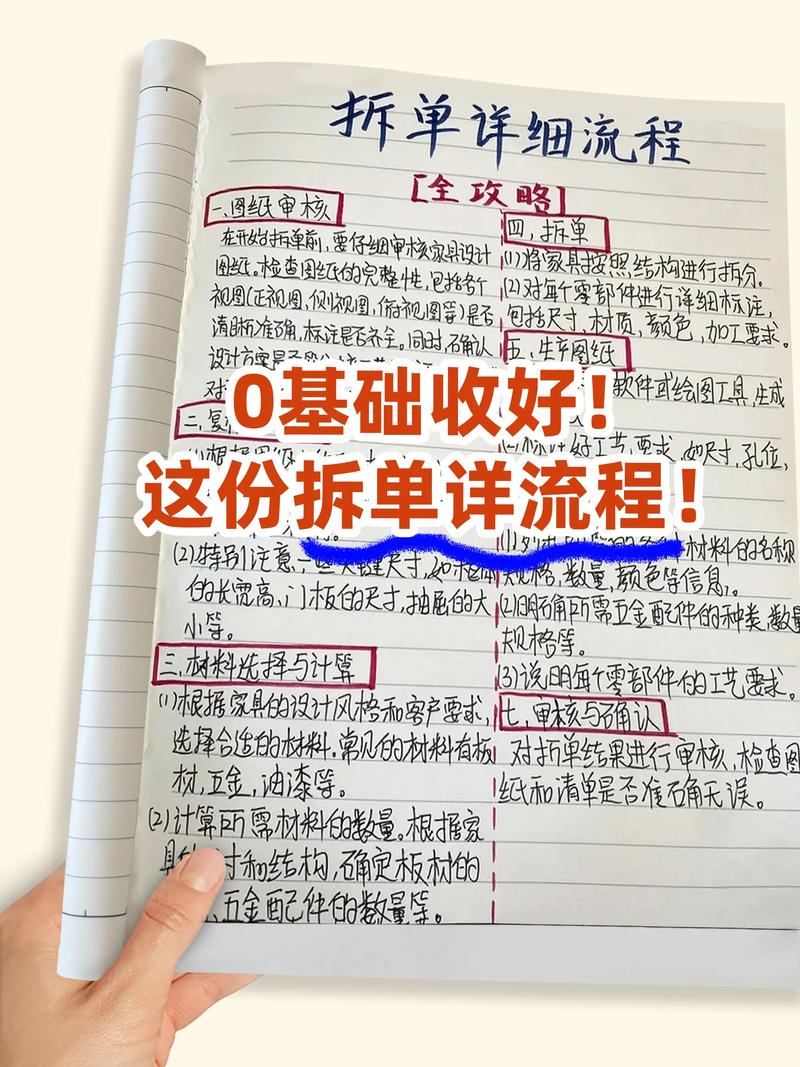 拆单详细流程
[全攻略]
一、图纸审核
在开始拆单前,要仔细审核家具设计
图纸。检查图纸的完整性,包括各个
视图(正视图,侧视图,俯视图等)是否
清晰准确,标注是否齐全。同时,确认
设计方案是否
对
二、复
(2)特别注意,一些关键尺寸,如柜体
的长宽高,门板的尺寸,抽屉的大
小等。
三、材料选择与计算
(1)根据家具的设计风格和客户要求,
选择合适的材料.常见的材料有板
材,五金,油漆等。
(2)计算所需材料的数量。根据家
寸和结构,确定板材的
、五金配件的数量等。
四,拆单
(1)将家具按照结构进行拆分。
(2)对每个零部件进行详细标注,
包括尺寸,材质,颜色,加工要求。
五、生产图纸
软件或绘图工具,生成
好工艺要求,如尺寸,孔位,
材料的名称
规格,数量,颜色等信息,。
(2)明确所需五金配件的种类,数量
规格等。
(3)说明每个零部件的工艺要求。
七,审核与确认
对拆单结果进行审核,检查图
纸和清单是否准确无误。
0基础收好!
这份拆单详流程!